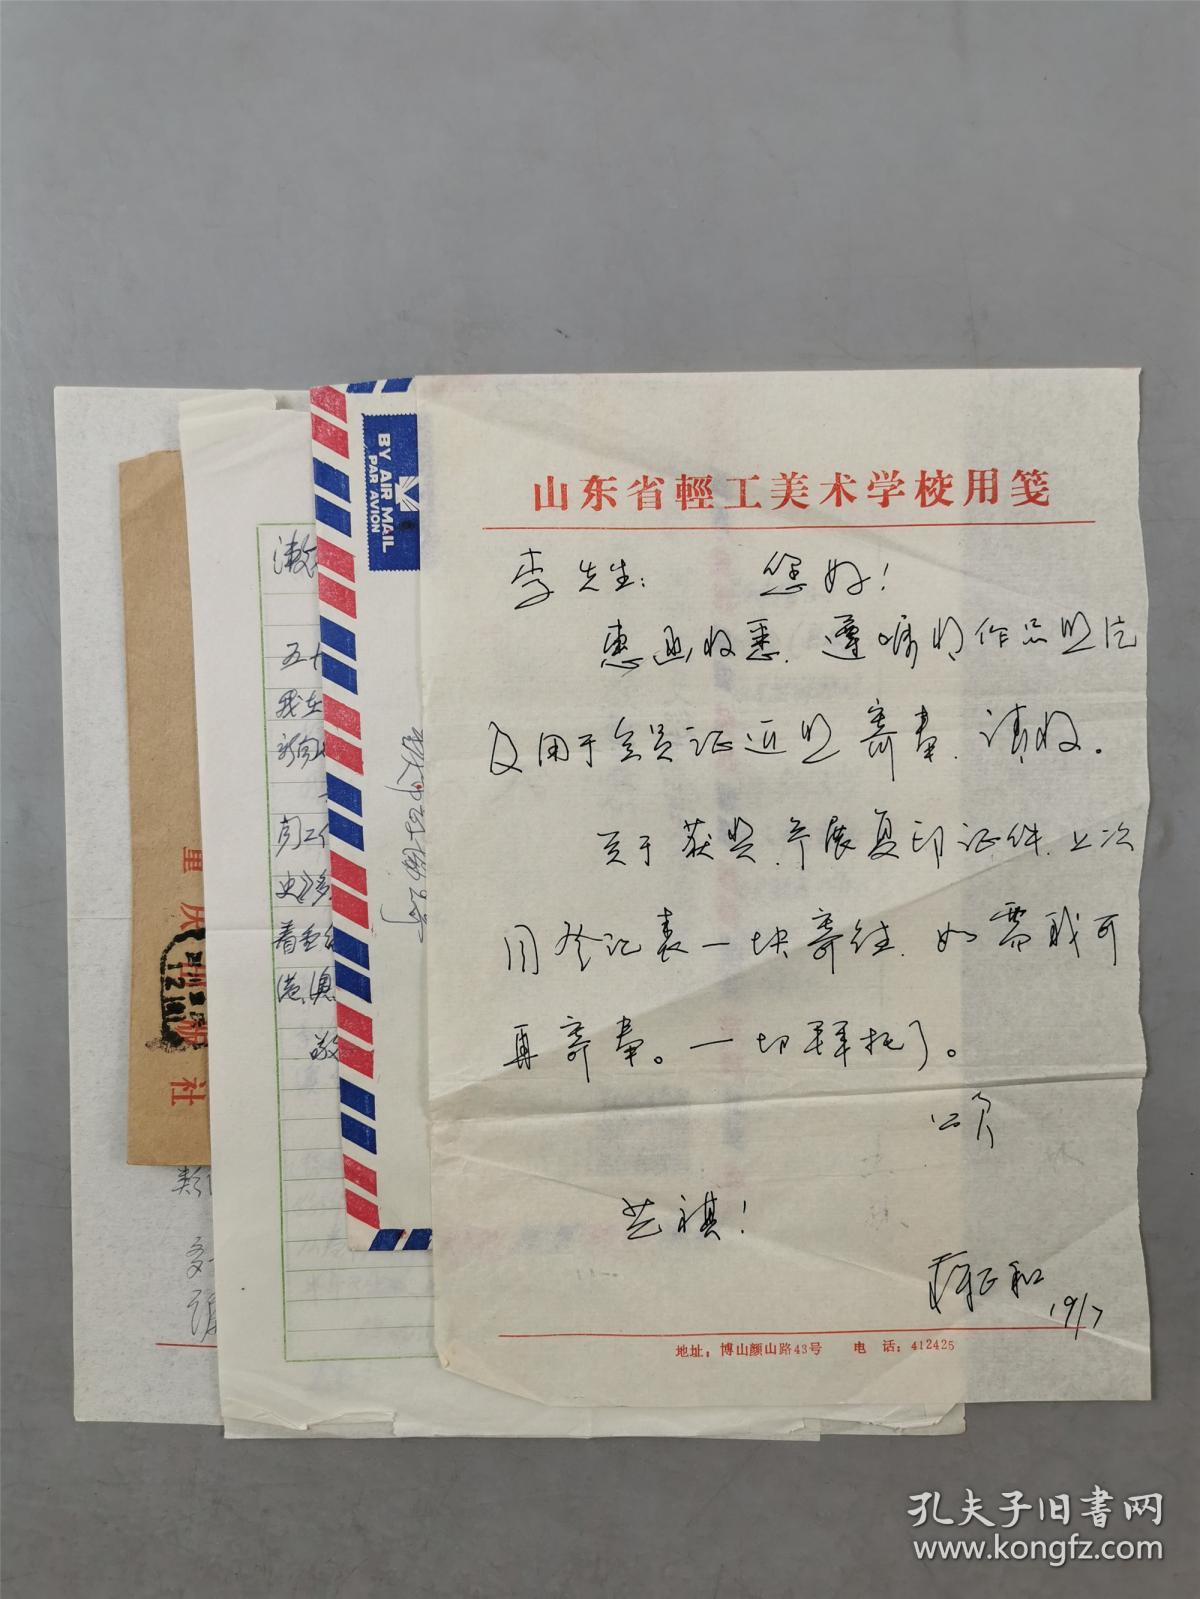 山东省輕工美术学校用笺
李先生： 您好！
惠函收悉，遵嘱将作品照片
及用于会员证近照寄奉，请收。
关于获奖、参展复印证件，上次
同登记表一块寄往，如需我可
再寄奉。一切拜托了。
即颂
艺祺！
正和
19/7
地址：博山颜山路43号 电 话：412425
BY AIR MAIL
PAR AVION
五十
我在
港、澳
敬
重庆
社
类
孔夫子旧书网
www.kongfz.com